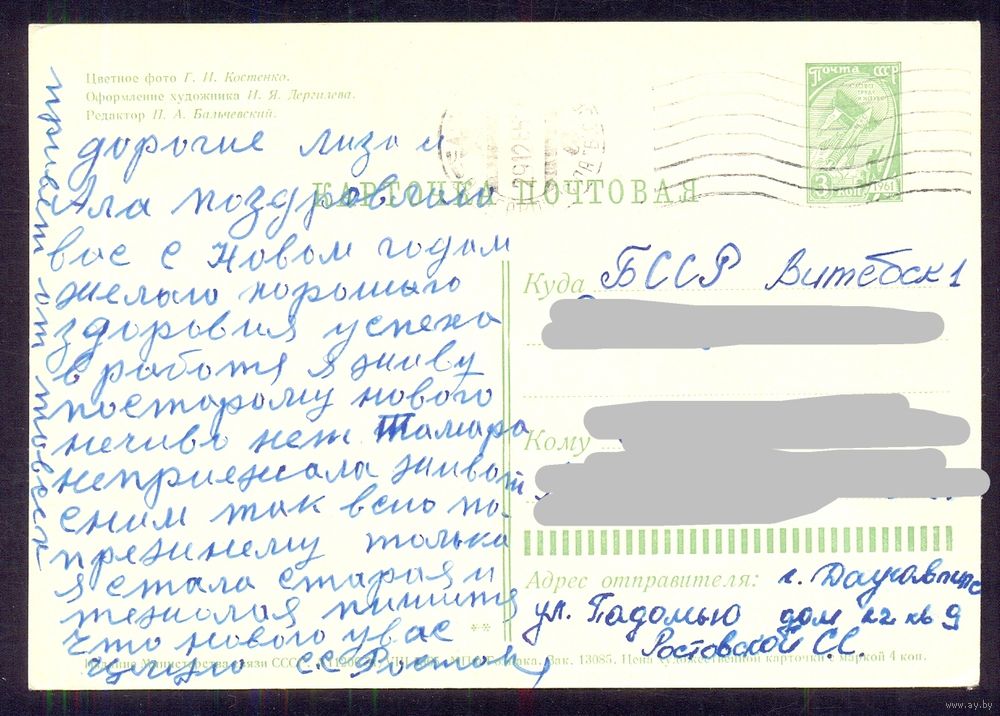 Цветное фото Г. И. Костенко.
Оформление художника И. Я. Дергилева.
Редактор П. А. Бальчевский.
Почта СССР
3 коп. 1961
КАРТОЧКА ПОЧТОВАЯ
дорогие лиза и
Ала поздровляю
вас с новом годом
желаю хорошыго
здоровия успеха
в работя я живу
постарому нового
нечиво нет Тамара
неприежала живот
сним так всио по
прежнему только
я стала старая и
тежолая пишитя
что нового увас
привет от
Куда БССР Витебск 1
Кому
Адрес отправителя: г. Даугавпилс
ул. Гадомью дом 22 кв 9
Ростовской С.С.
Издание Министерства связи СССР. Зак. 13085. Цена художественной карточки с маркой 4 коп.
www.ay.by